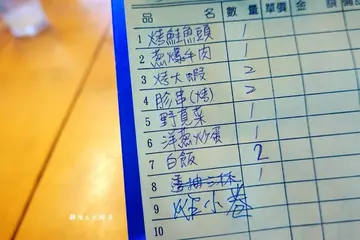 品 名 數 量 單價 金 額
1 烤鮭魚頭 1
2 蔥爆牛肉 1
3 烤大蝦 2
4 肠串(烤) 2
5 野莧菜 1
6 洋蔥炒蛋 1
7 白飯 2
8 1
9 小卷
10